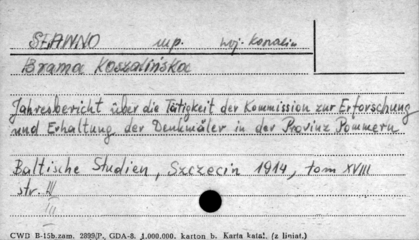 SŁAWNO mp. woj. Koszalin
Brama Koszalińska
Jahresbericht über die Tätigkeit der Kommission zur Erforschung
und Erhaltung der Denkmäler in der Provinz Pommern
Baltische Studien, Szczecin 1914, tom XVIII
str. III
CWD B-15b. zam. 2899/P., GDA-8. 1.000.000. karton b. Karta katal. (z liniat.)